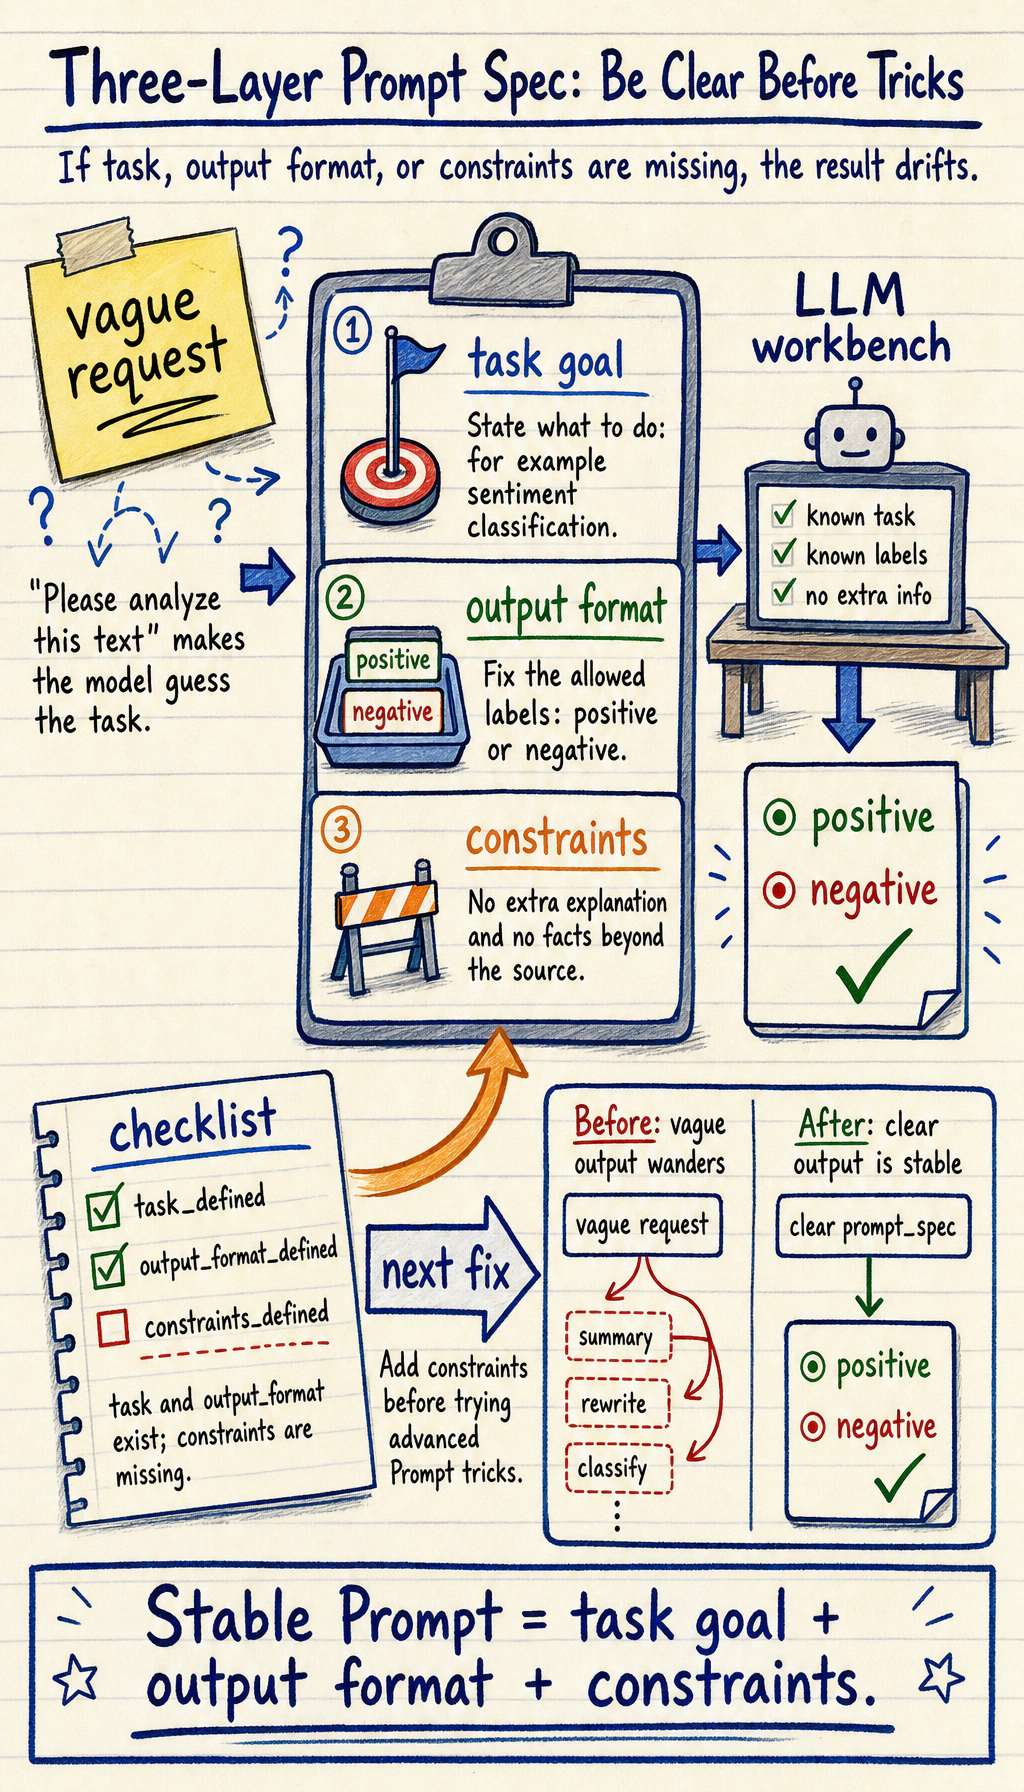 Three-Layer Prompt Spec: Be Clear Before Tricks
If task, output format, or constraints are missing, the result drifts.
vague
request
?
?
?
"Please analyze
this text" makes
the model guess
the task.
1
task goal
State what to do:
for example
sentiment
classification.
2
output format
positive
negative
Fix the allowed
labels: positive
or negative.
3
constraints
No extra explanation
and no facts beyond
the source.
LLM
workbench
known task
known labels
no extra info
positive
negative
checklist
task_defined
output_format_defined
constraints_defined
task and output_format
exist; constraints are
missing.
next fix
Add constraints
before trying
advanced
Prompt tricks.
Before: vague
output wanders
vague request
summary
rewrite
classify
After: clear
output is stable
clear prompt_spec
positive
negative
Stable Prompt = task goal +
output format + constraints.